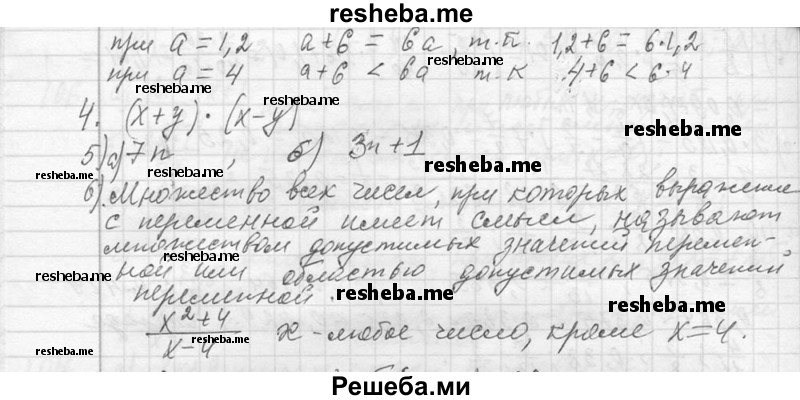 resheba.me
при a = 1,2 a + 6 = 6a, т.к. 1,2 + 6 = 6·1,2
при a = 4 a + 6 < 6a т.к 4 + 6 < 6·4
resheba.me resheba.me
4. (x + y) · (x – y) resheba.me
resheba.me
5) а) 7n , б) 3n + 1
resheba.me resheba.me
6) Множество всех чисел, при которых выражение
resheba.me resheba.me
с переменной имеет смысл, называют
множеством допустимых значений перемен-
resheba.me resheba.me
ной или областью допустимых значений
resheba.me
переменной.
resheba.me resheba.me
x² + 4
x – 4 x – любое число, кроме x = 4.
resheba.me resheba.me
Решеба.ми